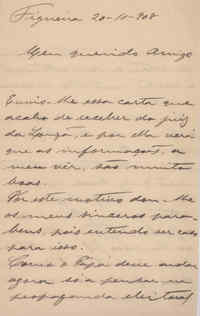 Figueira 20-10-908
Meu querido Amigo
Envio-Me essa carta que
acabo de receber do juiz
da Louzã, e por ella verá
que as informações, a
meu ver, são muito
boas.
Por este motivo dou-Me
os meus sinceros para-
bens, pois entendo ser caso
para isso.
Como o Papá deve andar
agora só a pensar na
propaganda eleitoral